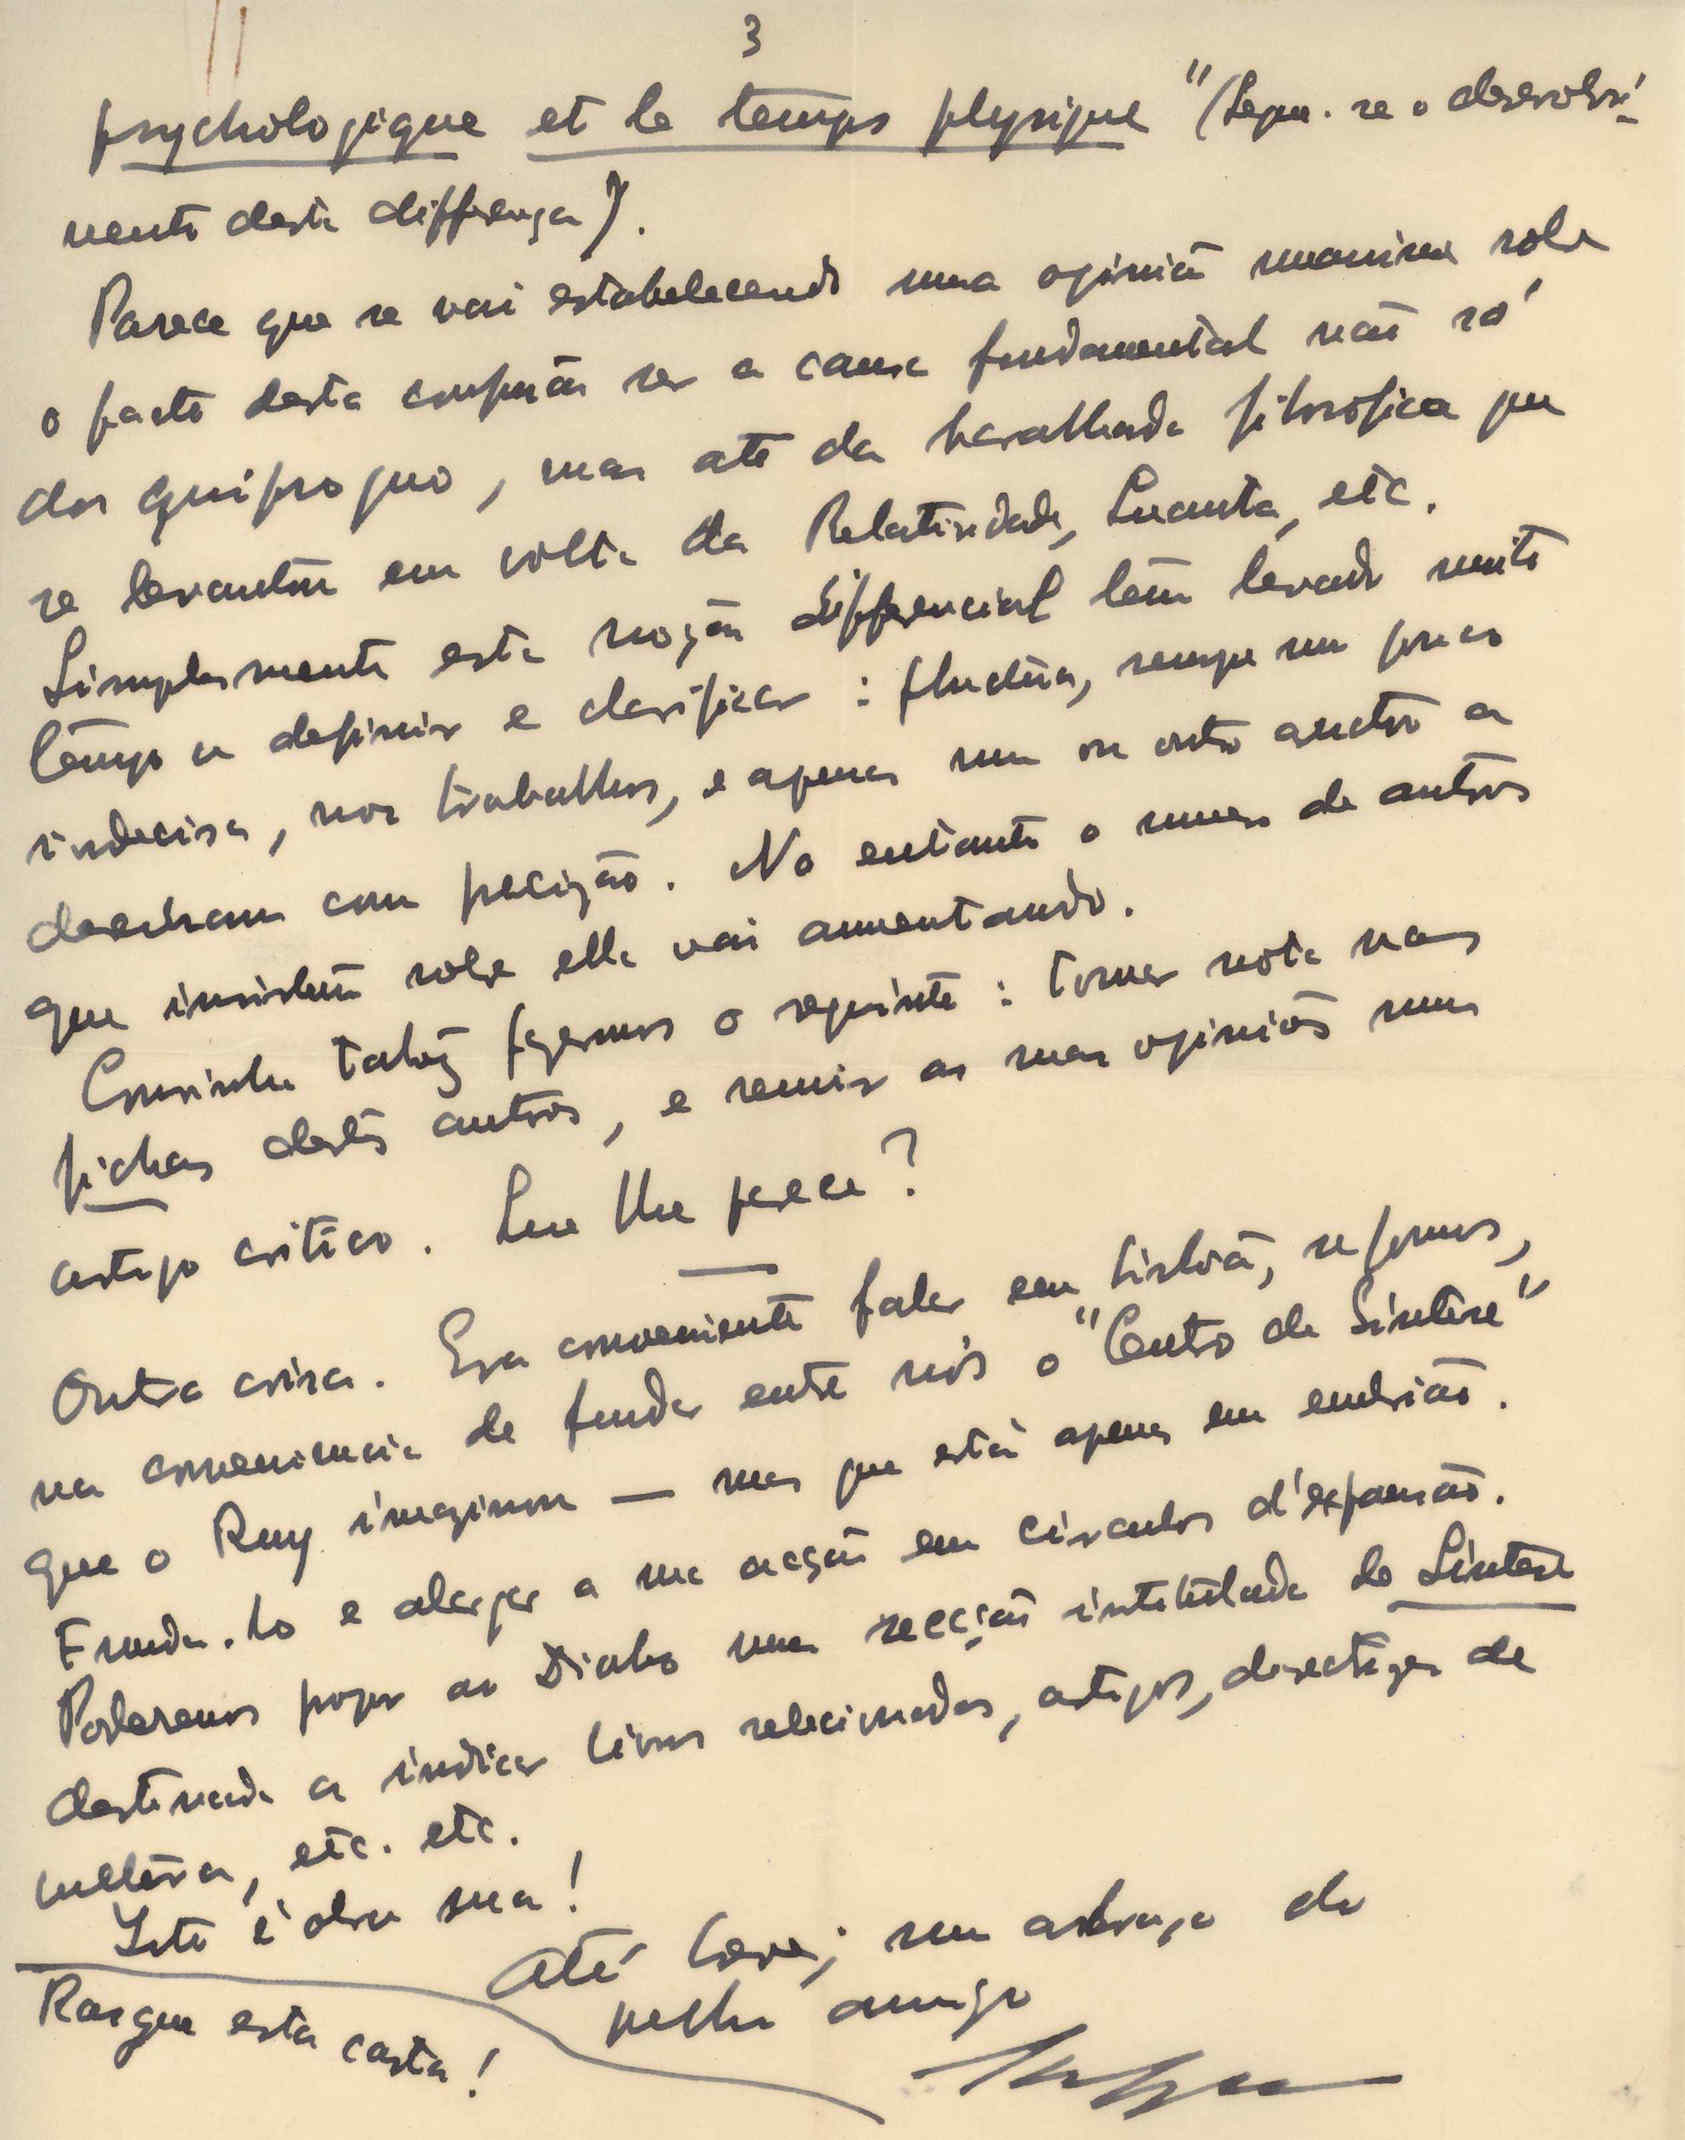 3
psychologique et le temps physique" (Segue-se o desenvolvi-
mento desta differença).
Parece que se vai estabelecendo uma opinião unanime sobre
o facto desta confusão ser a causa fundamental não só
dos quiproquo, mas até da baralhada filosofica que
se levantou em volta da Relatividade, Quanta, etc.
Simplesmente esta noção differencial tem levado muito
tempo a definir e clarificar: fluctua, sempre um pouco
indecisa, nos trabalhos, e apenas um ou outro auctor a
descrevem com precizão. No entanto o numero de autores
que insistem sobre ella vai aumentando.
Convinha talvez fazermos o seguinte: tomar nota nas
fichas destes autores, e reunir as suas opiniões num
artigo critico. Que lhe parece?
Outra coisa. Era conveniente falar em Lisboa, se formos,
na conveniencia de fundar entre nós o "Centro de Síntese"
que o Ruy imaginou — mas que está apenas em embrião.
Funda-lo e alargar a sua acção em circulos d'expansão.
Poderemos propor ao Diabo uma secção intitulada de Síntese
destinada a indicar livros relacionados, artigos, directrizes de
cultura, etc. etc.
Isto é obra sua!
Até breve; um abraço do
velho amigo
Rasgue esta carta!